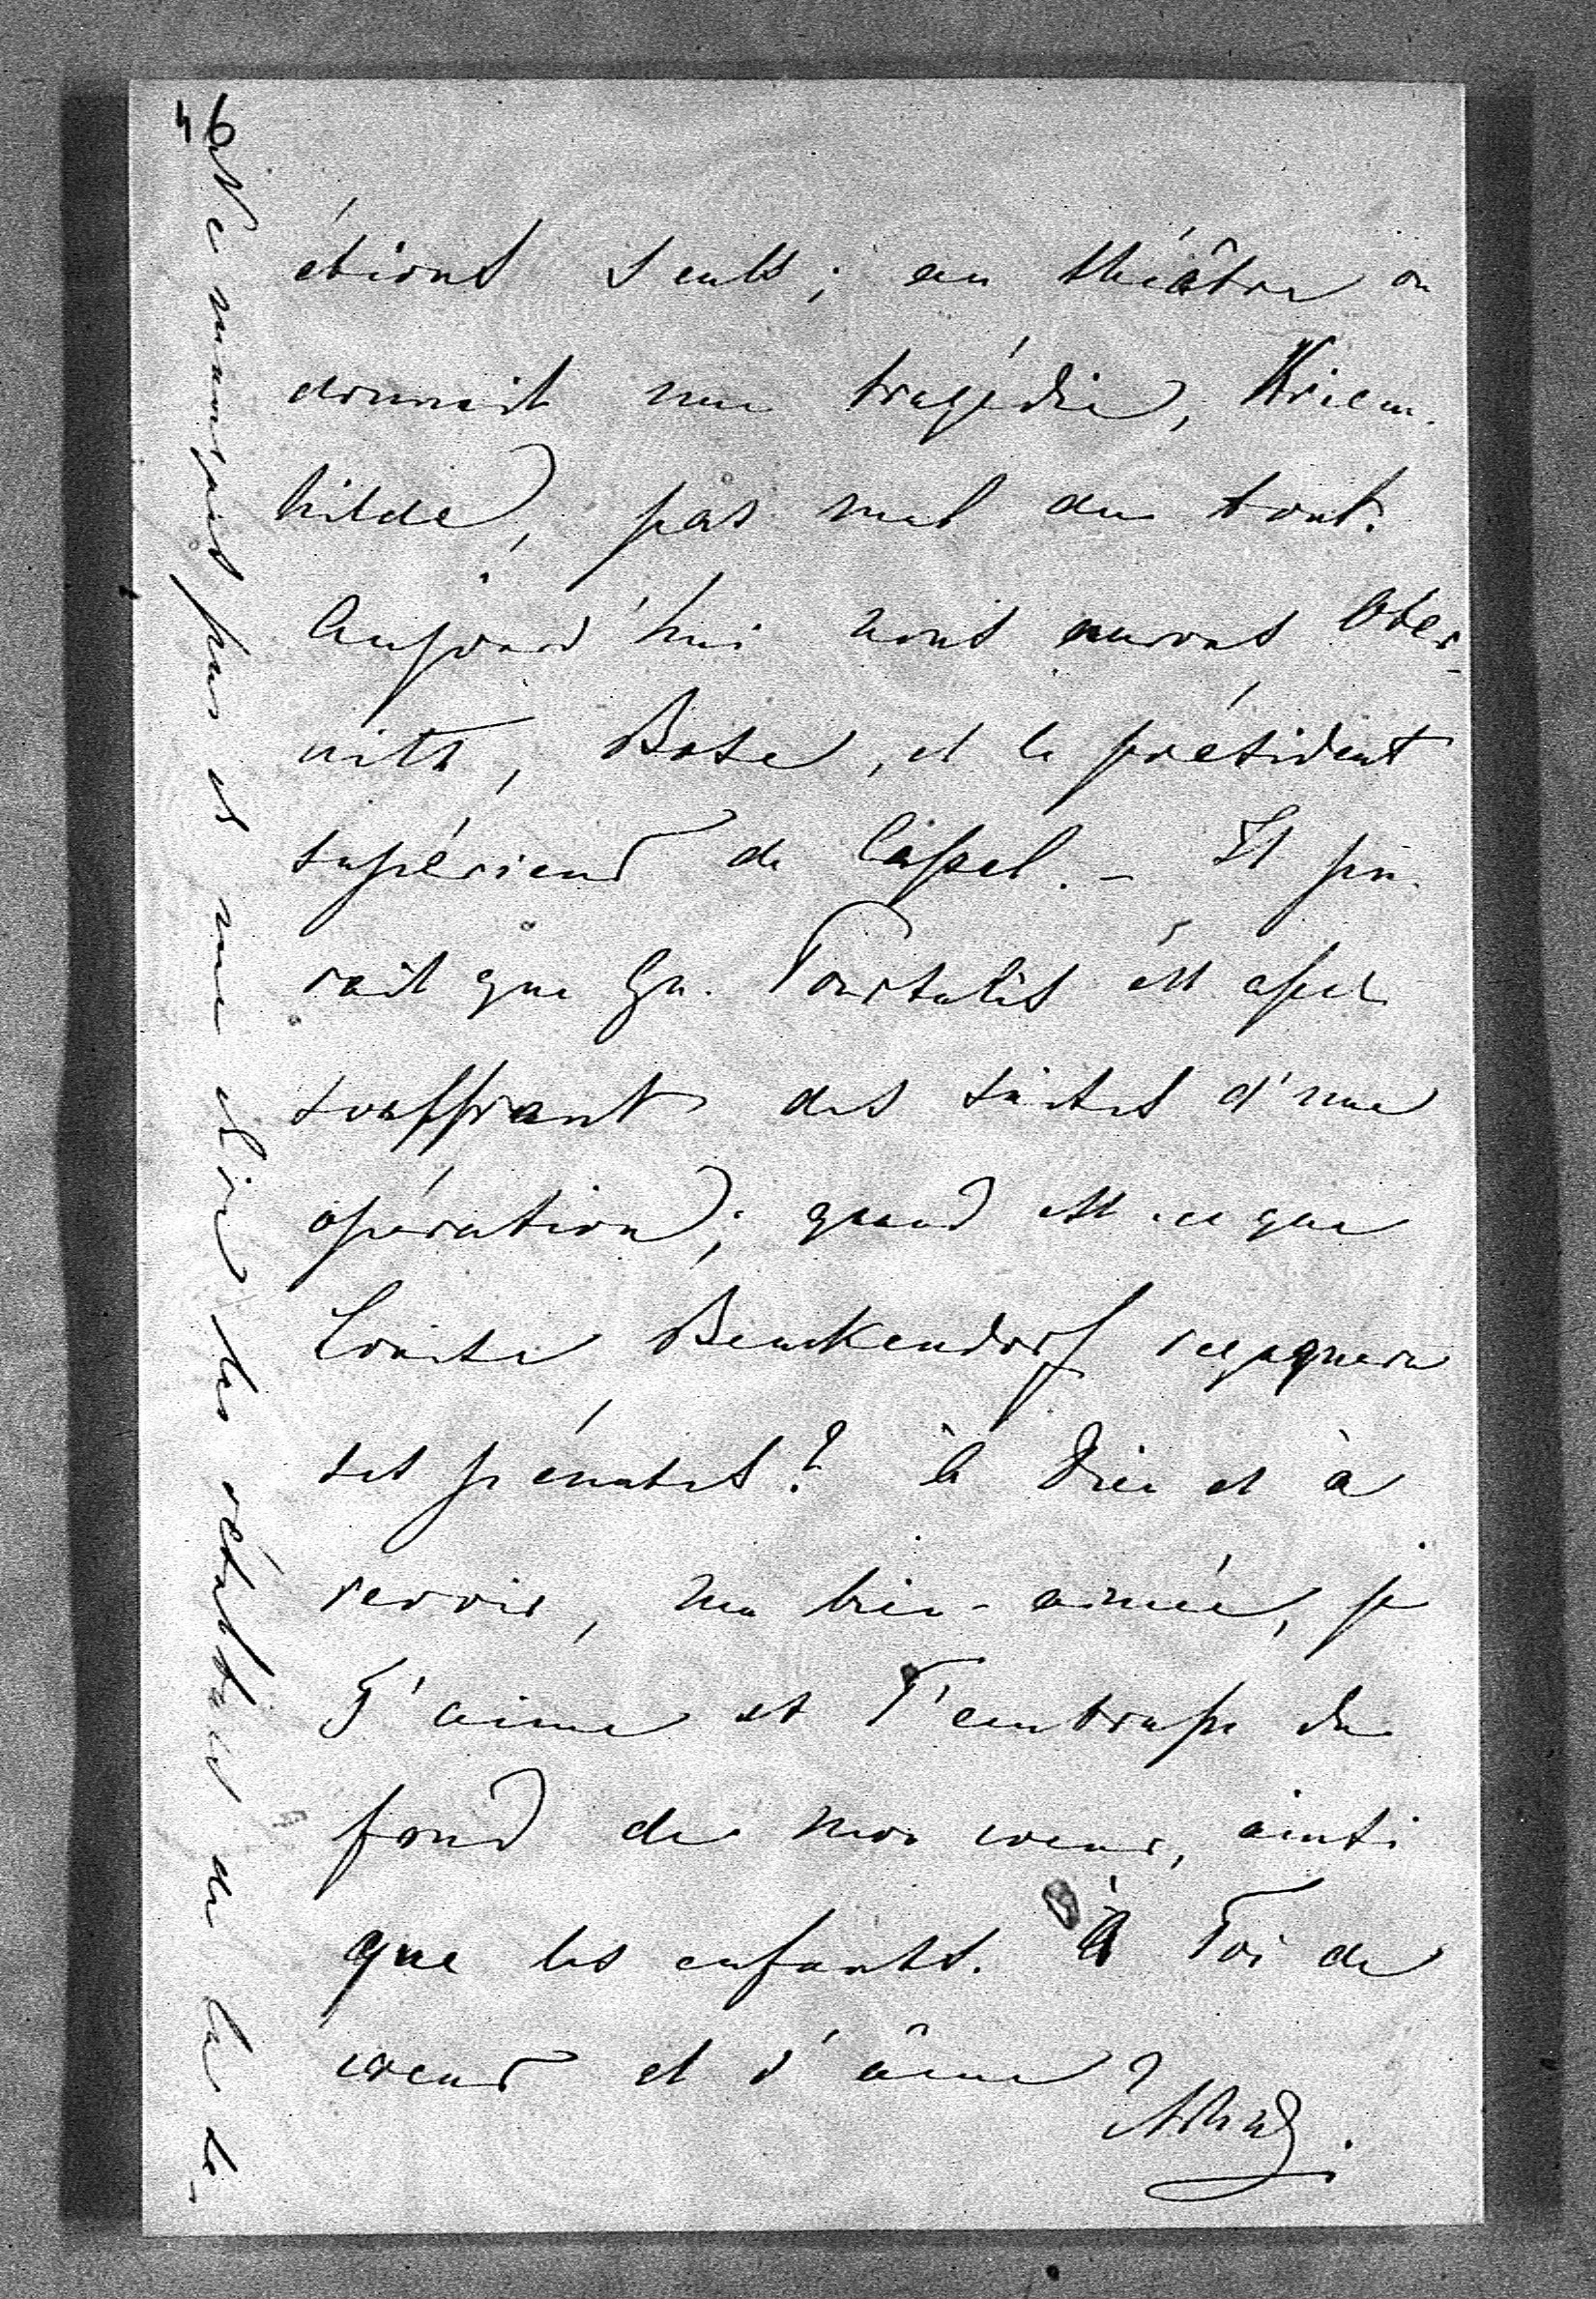 46
étions seuls; au théâtre on
donnait une tragédie, Kriem-
hilde, pas mal du tout.
Aujourd'hui nous aurons Oder-
nitz, Bose, et le président
supérieur de Cassel. – Il pa-
rait que Gu. Pourtalès est assez
souffrant des suites d'une
opération; quand est-ce que
Louise Benckendorf regagnera
ses pénates? à Dieu et à
revoir, ma bien-aimée, je
T'aime et T'embrasse du
fond de mon coeur, ainsi
que les enfants. à Toi de
coeur et d'âme
Ne manquez pas de me dire les résultats de la